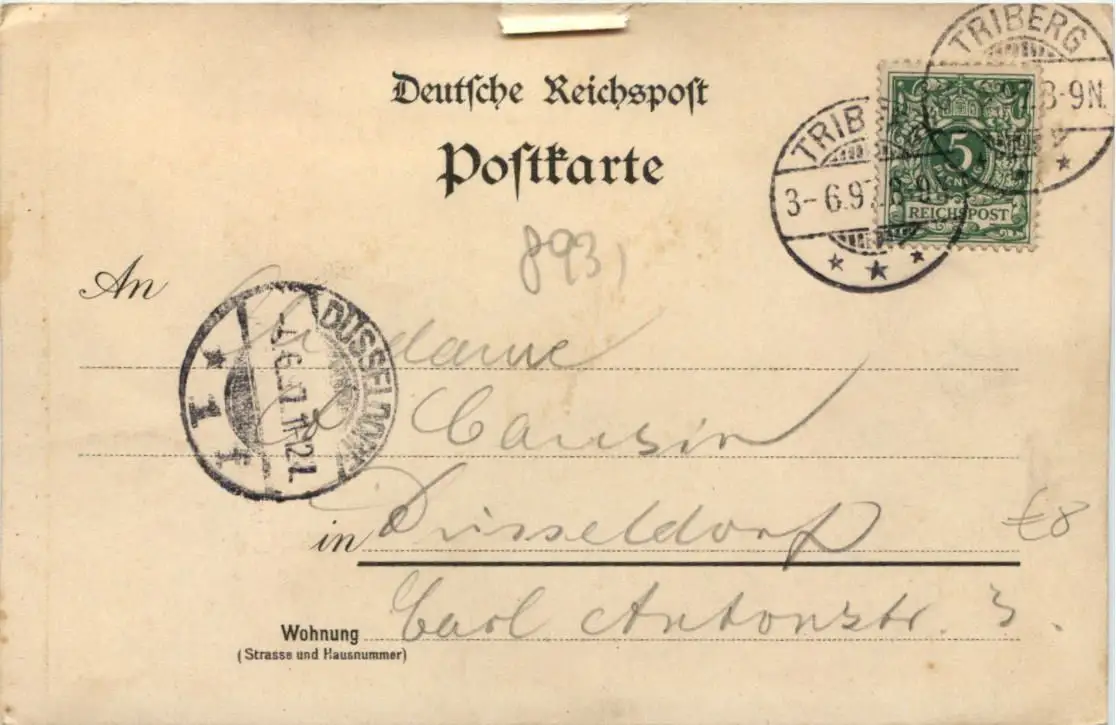 Deutsche Reichspost
Postkarte
TRIBERG
3-6.97.8-9N.
TRIBERG
97.8-9N.
5
REICHSPOST
893
An
Madame
Cousin
DÜSSELDORF
1
in Düsseldorf
€8
Wohnung Carl Antonstr. 3.
(Strasse und Hausnummer)